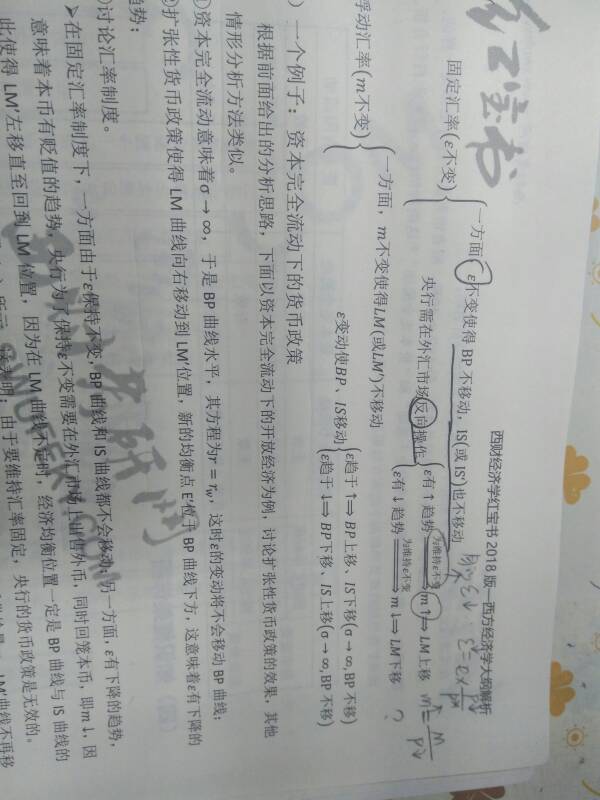 红宝书
西财经济学红宝书 2018 版—西方经济学大纲解析
固定汇率(ε不变)
一方面, ε不变使得 BP 不移动; IS(或 IS')也不移动
央行需在外汇市场反向操作
ε有↑趋势 为维持ε不变 m↑⟹LM上移
ε有↓趋势 为维持ε不变 m↓⟹LM下移
浮动汇率(m不变)
一方面, m不变使得LM(或LM')不移动
ε变动使BP、IS移动
ε趋于↑⟹BP上移、IS下移(σ→∞,BP 不移)
ε趋于↓⟹BP下移、IS上移(σ→∞,BP 不移)
)一个例子:资本完全流动下的货币政策
根据前面给出的分析思路,下面以资本完全流动下的开放经济为例,讨论扩张性货币政策的效果,其他
情形分析方法类似。
①资本完全流动意味着σ→∞,于是 BP 曲线水平,其方程为r = r_w,这时ε的变动将不会移动 BP 曲线;
②扩张性货币政策使得 LM 曲线向右移动到 LM'位置,新的均衡点 E'位于 BP 曲线下方,这意味着ε有下降的
趋势:
讨论汇率制度。
➤在固定汇率制度下,一方面由于ε保持不变,BP 曲线和 IS 曲线都不会移动;另一方面,ε有下降的趋势,
意味着本币有贬值的趋势,央行为了保持ε不变需要在外汇市场上出售外币,同时回笼本币,即m↓,因
此使得 LM'左移直至回到 LM 位置,因为在 LM 曲线不定时,经济均衡位置一定是 BP 曲线与 IS 曲线的
表明:由于要维持汇率固定,央行的货币政策是无效的。
LM'曲线不再移